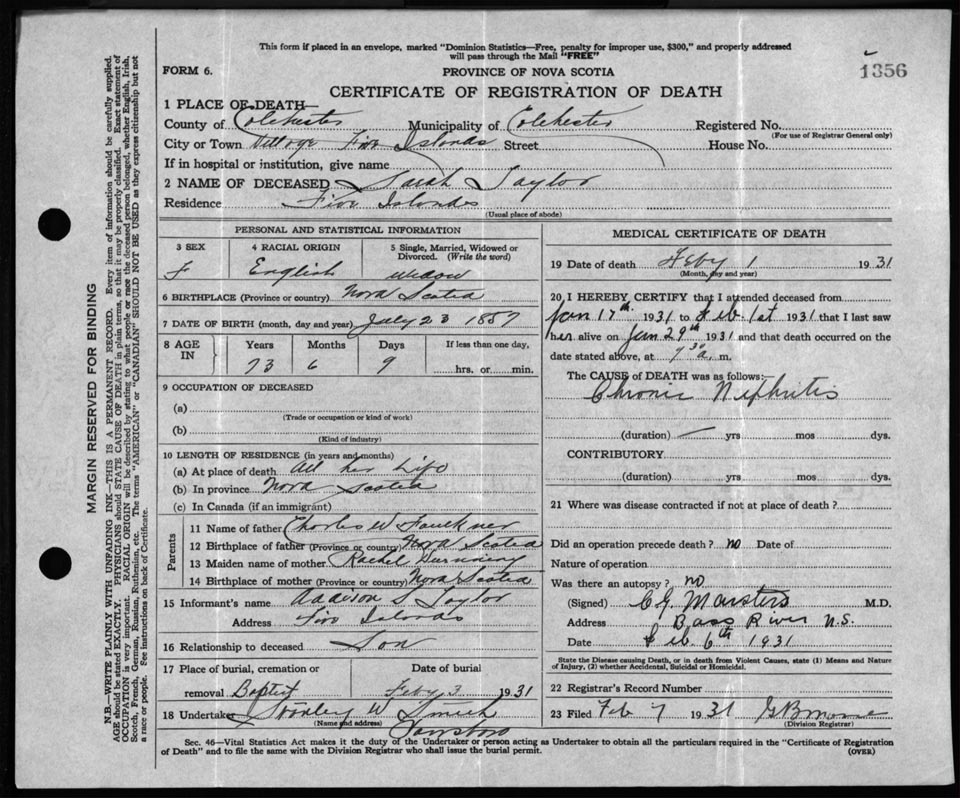 This form if placed in an envelope, marked "Dominion Statistics—Free, penalty for improper use, $300," and properly addressed
will pass through the Mail "FREE"
FORM 6.
PROVINCE OF NOVA SCOTIA
1356
CERTIFICATE OF REGISTRATION OF DEATH
1 PLACE OF DEATH—
County of Colchester Municipality of Colchester Registered No.
(For use of Registrar General only)
City or Town Village Five Islands Street House No.
If in hospital or institution, give name
2 NAME OF DECEASED Sarah Taylor
Residence Five Islands
(Usual place of abode)
PERSONAL AND STATISTICAL INFORMATION
3 SEX 4 RACIAL ORIGIN 5 Single, Married, Widowed or
Divorced. (Write the word)
F English widow
6 BIRTHPLACE (Province or country) Nova Scotia
7 DATE OF BIRTH (month, day and year) July 23 1857
8 AGE
IN
Years Months Days If less than one day,
73 6 9 hrs. or min.
9 OCCUPATION OF DECEASED
(a)
(Trade or occupation or kind of work)
(b)
(Kind of industry)
10 LENGTH OF RESIDENCE (in years and months)
(a) At place of death All her Life
(b) In province Nova Scotia
(c) In Canada (if an immigrant)
Parents
11 Name of father Charles W Faulkner
12 Birthplace of father (Province or country) Nova Scotia
13 Maiden name of mother Rachel
14 Birthplace of mother (Province or country) Nova Scotia
15 Informant's name Addison S Taylor
Address Five Islands
16 Relationship to deceased Son
17 Place of burial, cremation or Date of burial
removal Baptist Feby 3 1931
18 Undertaker Stanley W Smith
(Name and address)
Parrsboro
MEDICAL CERTIFICATE OF DEATH
19 Date of death Feby 1 1931
(Month, day and year)
20 I HEREBY CERTIFY that I attended deceased from
Jan 17th 1931 to Feb 1st 1931 that I last saw
her alive on Jan 29th 1931 and that death occurred on the
date stated above, at 7 30 a. m.
The CAUSE of DEATH was as follows:
Chronic Nephritis
(duration) yrs mos dys.
CONTRIBUTORY
(duration) yrs mos dys.
21 Where was disease contracted if not at place of death?
Did an operation precede death? no Date of
Nature of operation
Was there an autopsy? no
(Signed) C G Marsters M.D.
Address Bass River N.S.
Date Feb. 6th 1931
State the Disease causing Death, or in death from Violent Causes, state (1) Means and Nature
of Injury, (2) whether Accidental, Suicidal or Homicidal.
22 Registrar's Record Number
23 Filed Feb 7 1931
(Division Registrar)
Sec. 46—Vital Statistics Act makes it the duty of the Undertaker or person acting as Undertaker to obtain all the particulars required in the "Certificate of Registration
of Death" and to file the same with the Division Registrar who shall issue the burial permit.
(OVER)
MARGIN RESERVED FOR BINDING
N.B.—WRITE PLAINLY WITH UNFADING INK—THIS IS A PERMANENT RECORD. Every item of information should be carefully supplied.
AGE should be stated EXACTLY. PHYSICIANS should STATE CAUSE OF DEATH in plain terms, so that it may be properly classified. Exact statement of
OCCUPATION is very important. RACIAL ORIGIN will be described by stating to what people or race the deceased person belonged, whether English, Irish,
Scotch, French, German, Russian, Ruthenian, etc. The terms "AMERICAN" or "CANADIAN" SHOULD NOT BE USED as they express citizenship but not
a race or people. See instructions on back of Certificate.